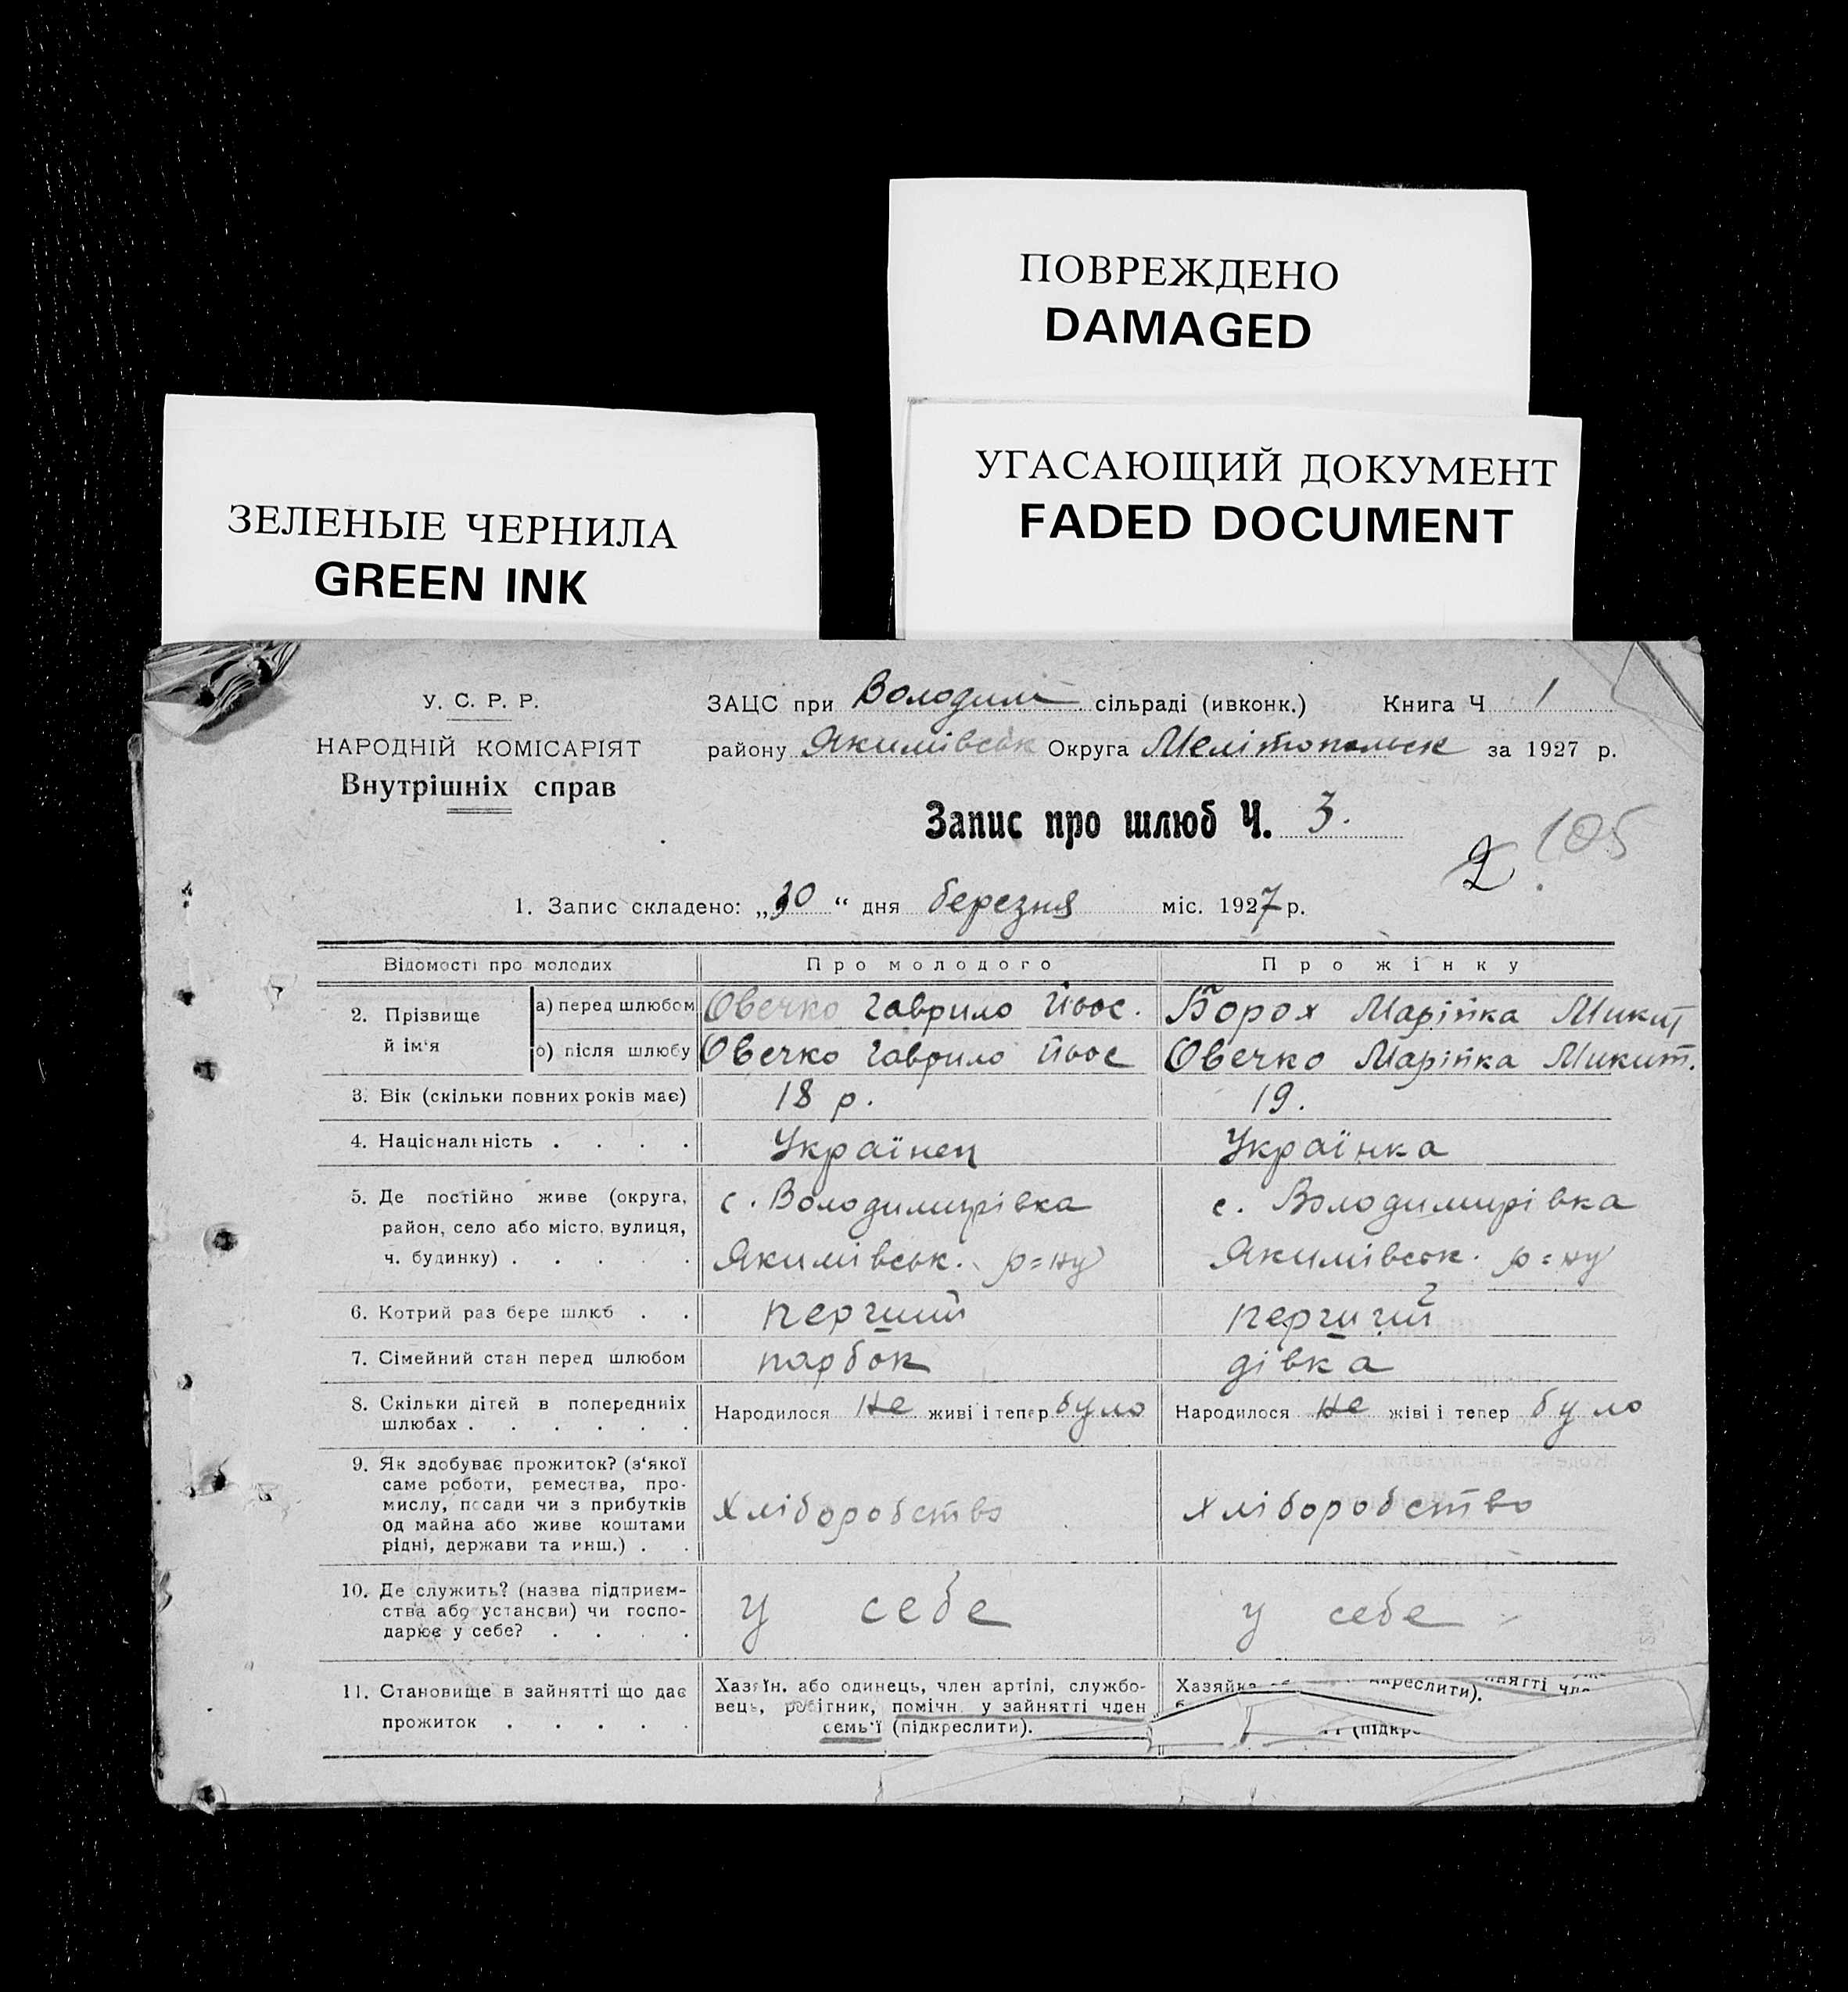 ПОВРЕЖДЕНО
DAMAGED
УГАСАЮЩИЙ ДОКУМЕНТ
FADED DOCUMENT
ЗЕЛЕНЫЕ ЧЕРНИЛА
GREEN INK
У. С. Р. Р.
НАРОДНІЙ КОМІСАРІЯТ
Внутрішніх справ
ЗАЦС при Володим сільраді (ивконк.) Книга Ч 1
району Якимівськ Округа Мелітопольск за 1927 р.
Запис про шлюб Ч. 3.
2 105
1. Запис складено: „30“ дня березня міс. 1927 р.
Відомості про молодих Про молодого Про жінку
2. Прізвище й ім'я а) перед шлюбом Овечко Гаврило Йос. Борох Марійка Микит
б) після шлюбу Овечко Гаврило Йос Овечко Марійка Микит.
3. Вік (скільки повних років має) 18 р. 19.
4. Національність . . . . Українец Українка
5. Де постійно живе (округа, с. Володимирівка с. Володимирівка
район, село або місто, вулиця,
ч. будинку) . . . . . Якимівськ. р=ну Якимівськ. р=ну
6. Котрий раз бере шлюб . . перший перший
7. Сімейний стан перед шлюбом парбок дівка
8. Скільки дітей в попередниіх
шлюбах . . . . . . Народилося не живі і тепер було Народилося не жіві і тепер було
9. Як здобуває прожиток? (з'якої
саме роботи, ремества, про-
мислу, посади чи з прибутків хліборобство хліборобство
од майна або живе коштами
рідні, держави та инш.) . .
10. Де служить? (назва підприєм-
ства або установи) чи госпо- у себе у себе
дарює у себе? . . . .
11. Становище в зайнятті що дає Хазяїн. або одинець, член артілі, службо- Хазяйка
прожиток . . . . . вець, робітник, помічн. у зайнятті член
семь'ї (підкреслити).